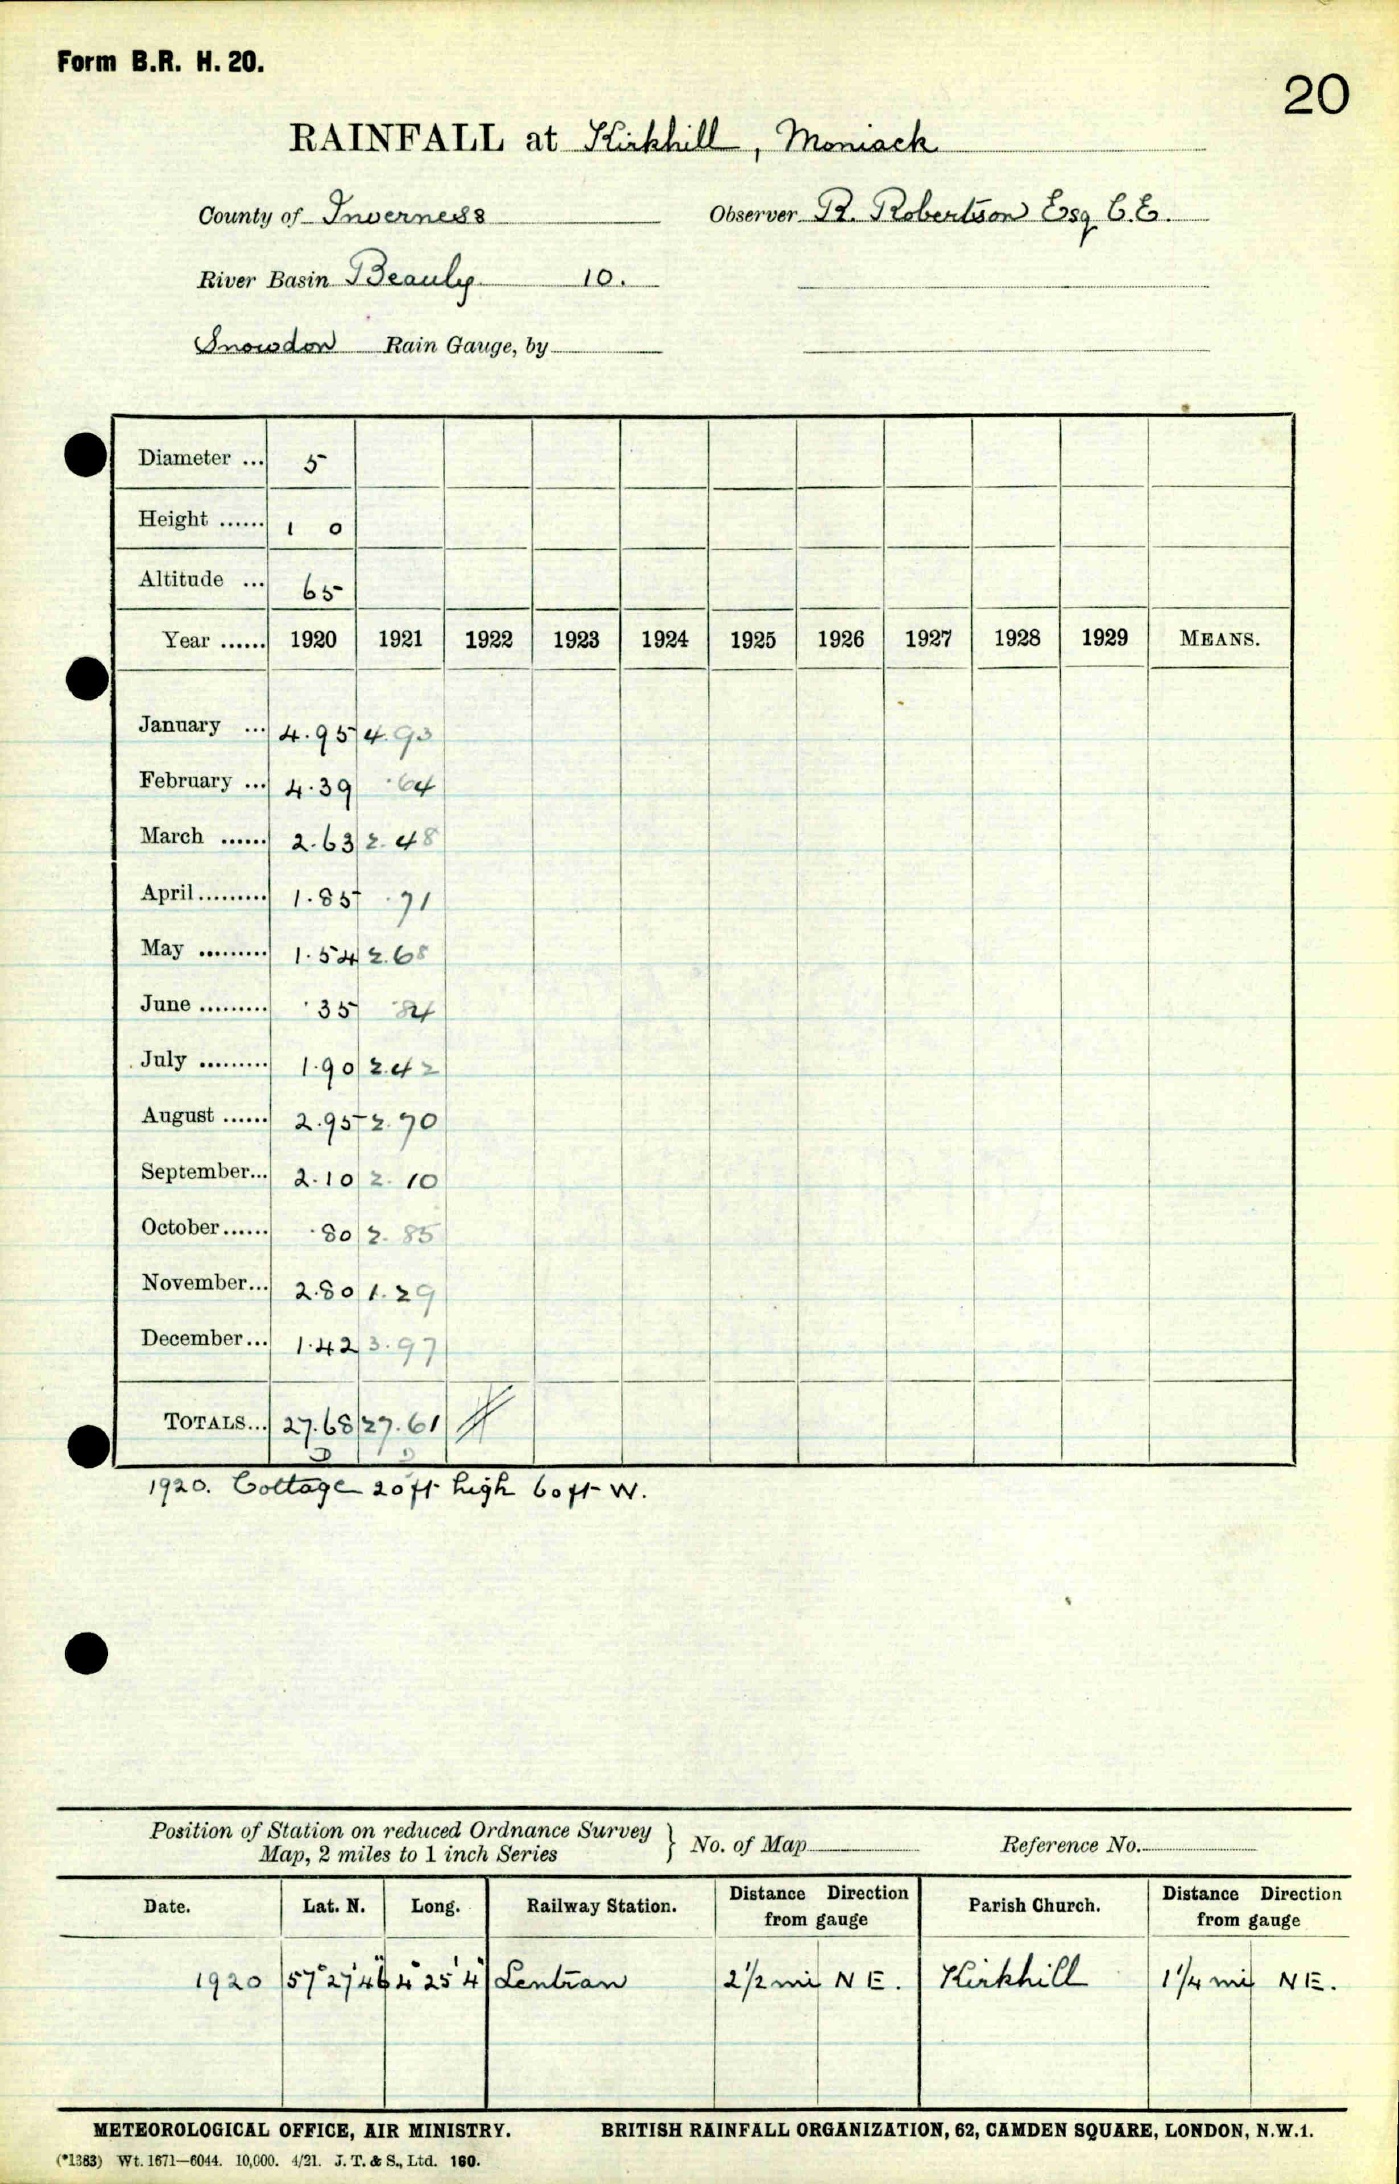 Form B.R. H. 20.
20
RAINFALL at Kirkhill, Moniack
County of Inverness Observer R. Robertson Esq C.E.
River Basin Beauly 10.
Snowdon Rain Gauge, by
Diameter ... 5
Height ...... 1 0
Altitude ... 65
Year ...... 1920 1921 1922 1923 1924 1925 1926 1927 1928 1929 MEANS.
January ... 4.95 4.93
February ... 4.39 .64
March ...... 2.63 2.48
April ......... 1.85 .71
May ......... 1.54 2.68
June ......... .35 .84
July ......... 1.90 2.42
August ...... 2.95 2.70
September... 2.10 2.10
October...... .80 2.85
November... 2.80 1.29
December... 1.42 3.97
TOTALS... 27.68 27.61
D D
1920. Cottage 20ft high 60ft W.
Position of Station on reduced Ordnance Survey
Map, 2 miles to 1 inch Series } No. of Map Reference No.
Date. Lat. N. Long. Railway Station. Distance Direction from gauge Parish Church. Distance Direction from gauge
1920 57° 27' 46" 4° 25' 4" Lentran 2½ mi N E. Kirkhill 1¼ mi NE.
METEOROLOGICAL OFFICE, AIR MINISTRY. BRITISH RAINFALL ORGANIZATION, 62, CAMDEN SQUARE, LONDON, N.W.1.
(*1383) Wt. 1671—6044. 10,000. 4/21. J. T. & S., Ltd. 160.